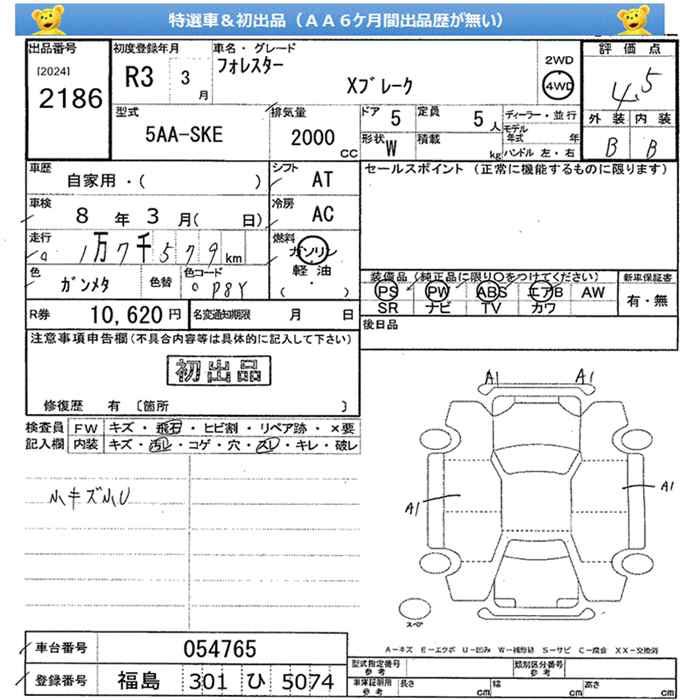 特選車＆初出品（ＡＡ６ケ月間出品歴が無い）
出品番号
[2024]
2186
初度登録年月
R3 3 月
車名・グレード
フォレスター
Xブレーク
2WD
4WD
評価点
4.5
外装 内装
B B
型式
5AA-SKE
排気量
2000 CC
ドア 5
定員 5 人
形状 W
積載 kg
ディーラー・並行
モデル年式 年
ハンドル 左・右
車歴
自家用・( )
シフト AT
セールスポイント（正常に機能するものに限ります）
車検
8 年 3 月( 日)
冷房 AC
走行
1万7千579 km
燃料
ガソリン
軽油
( ・ )
色
ガンメタ
色替
色コード
P8Y
装備品（純正品に限り○をつけてください）
PS PW ABS エアB AW
SR ナビ TV カワ
新車保証書
有・無
R券 10,620 円
名変通知期限 月 日
後日品
注意事項申告欄(不具合内容等は具体的に記入して下さい)
初出品
修復歴 有 〔箇所 〕
検査員
記入欄
FW キズ・飛石・ヒビ割・リペア跡・×要
内装 キズ・汚レ・コゲ・穴・スレ・キレ・破レ
小キズ小U
A1 A1
A1 A1
スペア
A－キズ E－エクボ U－凹み W－補修跡 S－サビ C－腐食 XX－交換済
車台番号 054765
登録番号 福島 301 ひ 5074
型式指定番号
参考
類別区分番号
参考
車庫証明用
参考
長さ cm 幅 cm 高さ cm